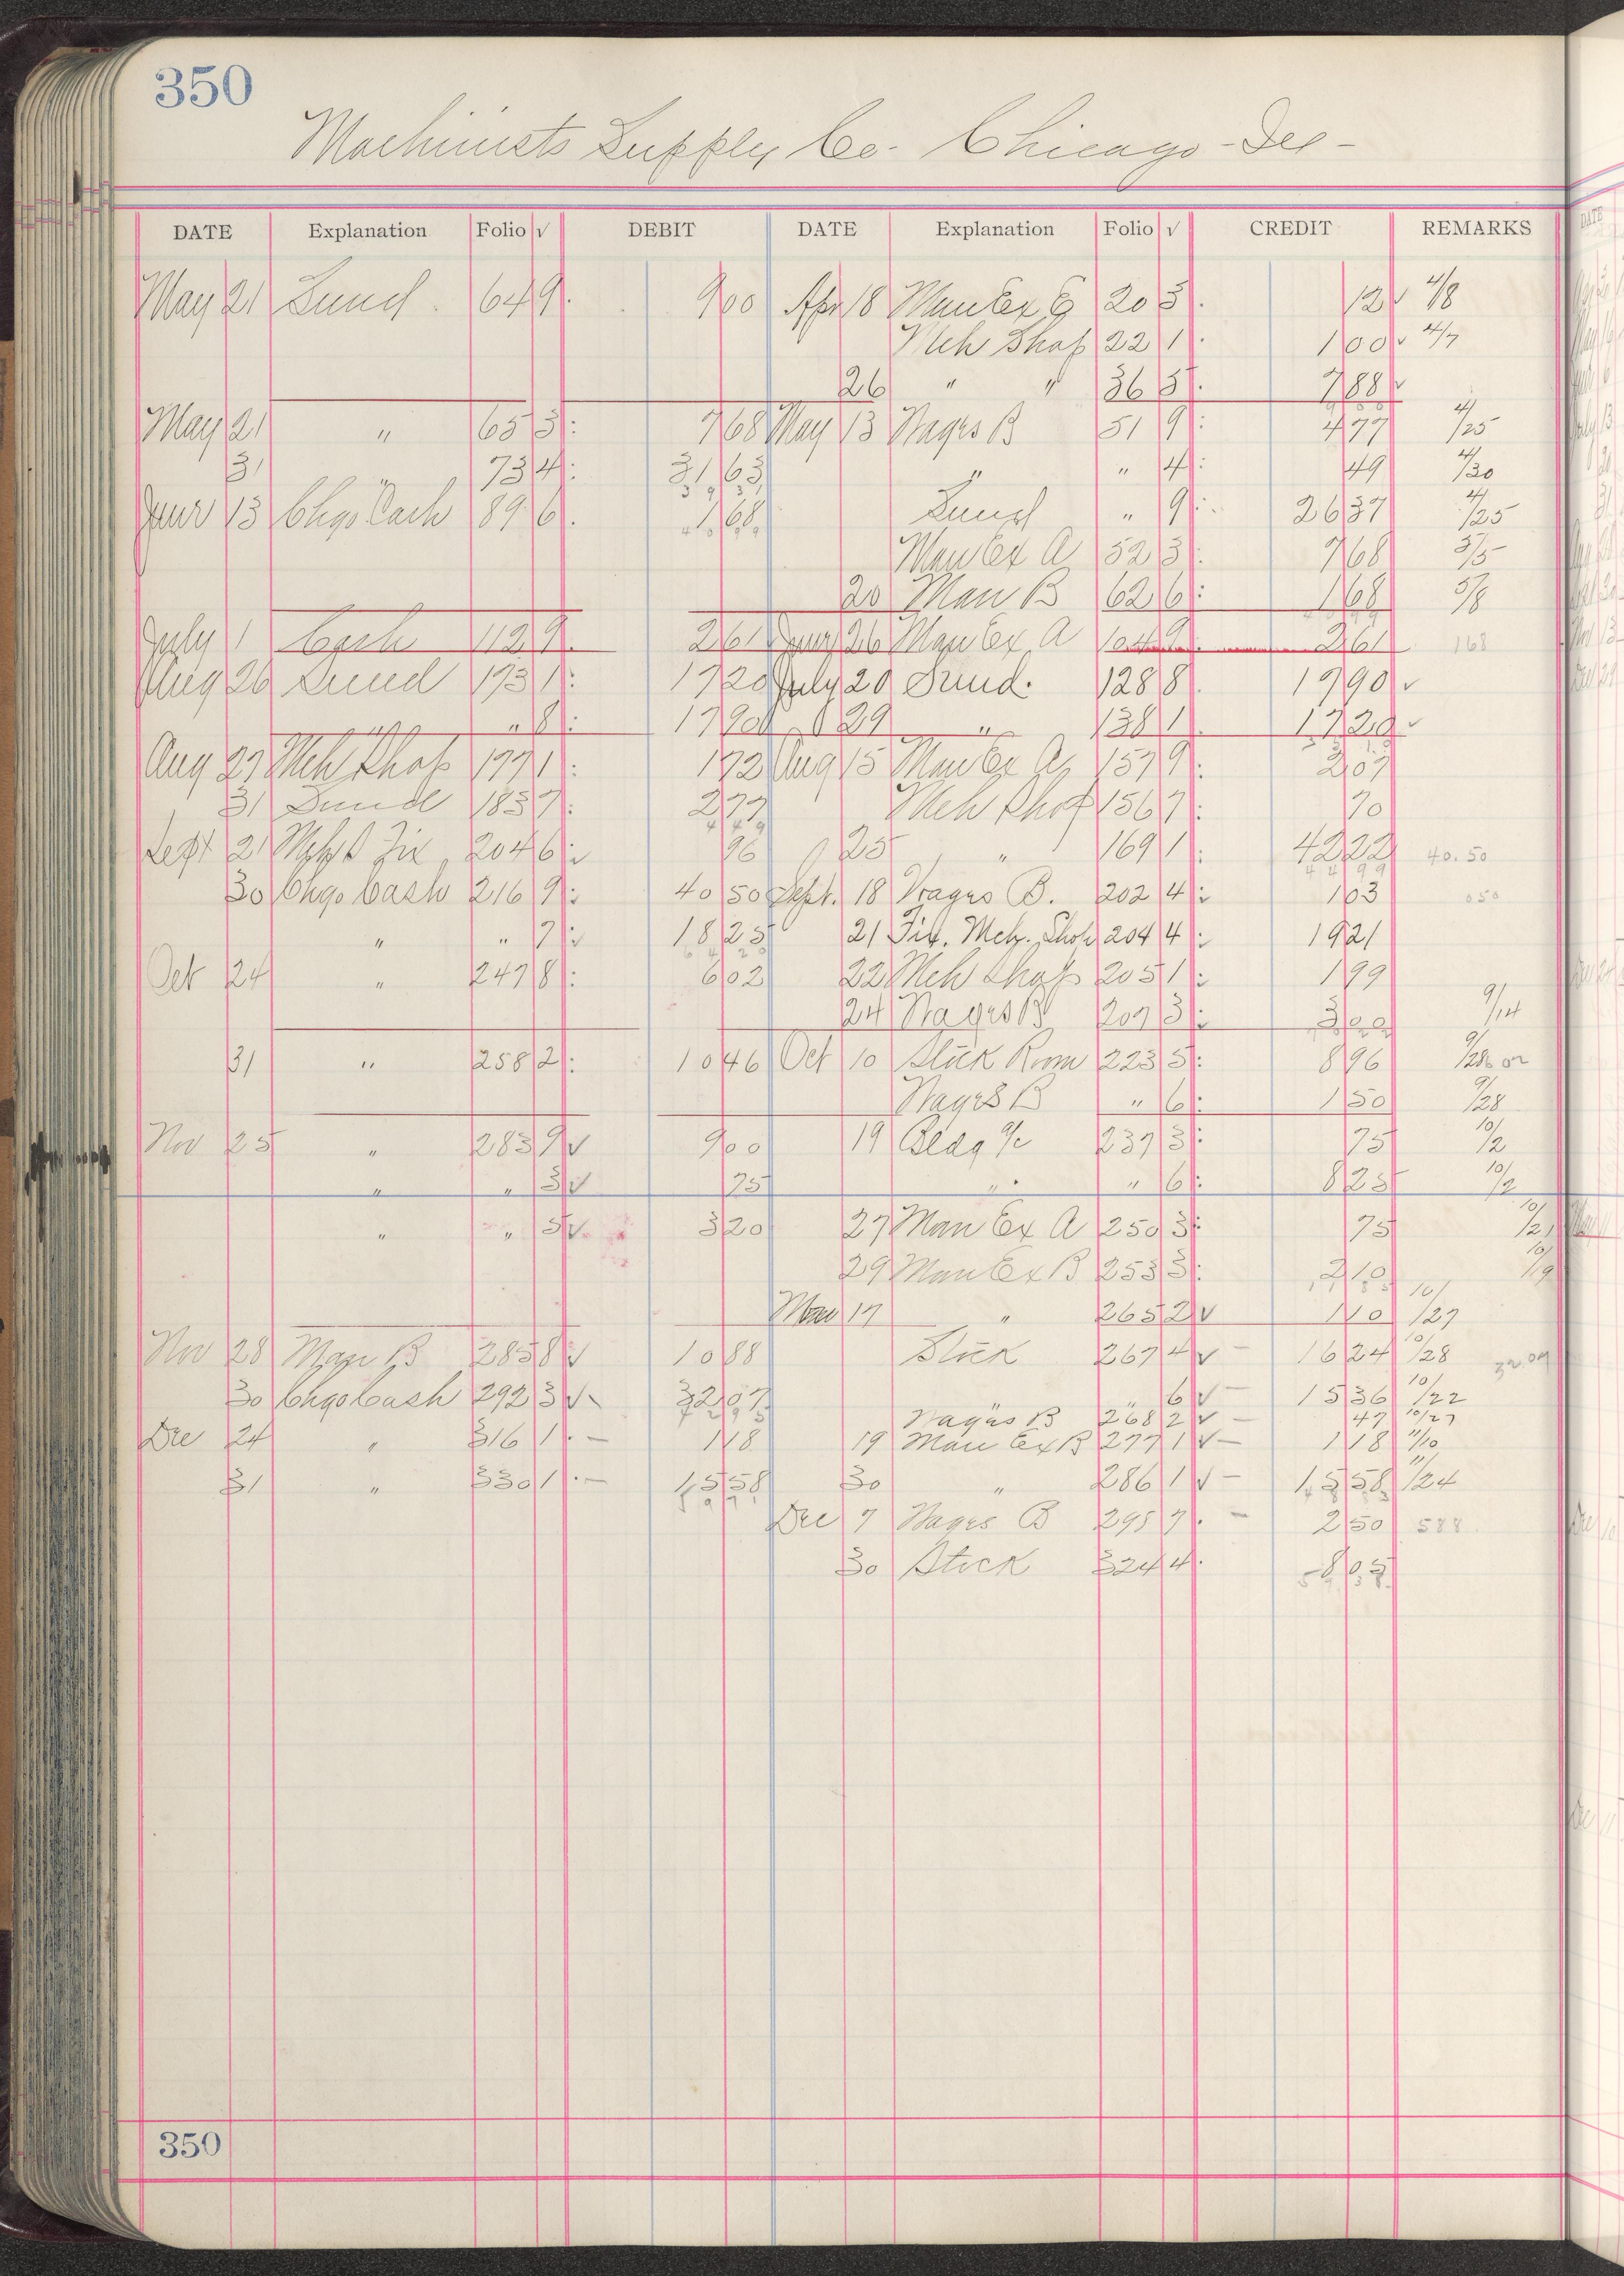 350
Machinists Supply Co. Chicago - Ill -
DATE Explanation Folio √ DEBIT DATE Explanation Folio √ CREDIT REMARKS
May 21 Sund 64 9 9 00 Apr 18 Man Ex 20 5 12 4/8
Mch Shop 22 1 1 00 4/7
26 " " 36 5 7 88
May 21 " 65 3 7 68 May 13 Wages B 51 9 4 77 4/25
31 " 73 4 31 63 " " 4 49 4/20
June 13 Chgo Cash 89 6 1 68 Sund " 9 26 37 4/25
Man Ex A 52 3 7 68 5/5
20 Man B 62 6 1 68 5/8
July 1 Cash 112 9 2 61 June 26 Man Ex A 104 9 2 61 168
Aug 26 Sund 193 1 17 20 July 20 Sund. 128 8 17 90
" " 8 17 90 29 " 138 1 17 20
Aug 27 Mch Shop 197 1 1 72 Aug 15 Man Ex A 157 9 2 07
31 Sund 183 7 2 77 Mch Shop 156 7 70
Sept 21 Fix 204 6 96 25 " 169 1 42 22 40.50
30 Chgo Cash 216 9 40 50 Sept. 18 Wages B. 202 4 1 03 050
" " 7 18 25 21 Fix. Mch. Shop 204 4 19 21
Oct 24 " 247 8 6 02 22 Mch Shop 205 1 1 99
24 Wages B 207 3 3 00 9/14
31 " 258 2 10 46 Oct 10 Stock Room 223 5 8 96 9/28
Wages B " 6 1 50 9/28
Nov 25 " 283 9 9 00 19 Bldg a/c 237 3 75 10/2
" " 3 75 " " 6 8 25 10/2
" " 5 3 20 27 Man Ex A 250 3 75 10/21
29 Man Ex B 253 3 2 10 10/19
Nov 17 " 265 2 1 10 10/27
Nov 28 Man B 285 8 10 88 Stock 267 4 16 24 10/28 32 07
30 Chgo Cash 292 3 32 07 " " 6 15 36 10/22
Wages B 268 2 47 10/27
Dec 24 " 316 1 1 18 19 Man Ex B 277 1 1 18 11/10
31 " 330 1 15 58 30 " 286 1 15 58 11/24
Dec 7 Wages B 295 7 2 50 588
30 Stock 324 4 8 05
350